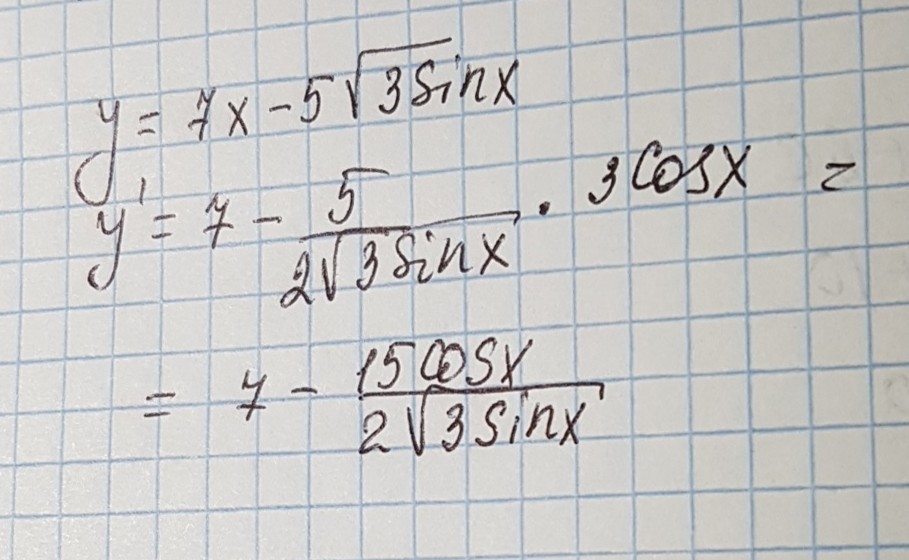 y = 7x - 5√3sinx
y' = 7 - 5/(2√3sinx) · 3cosx =
= 7 - 15cosx/(2√3sinx)